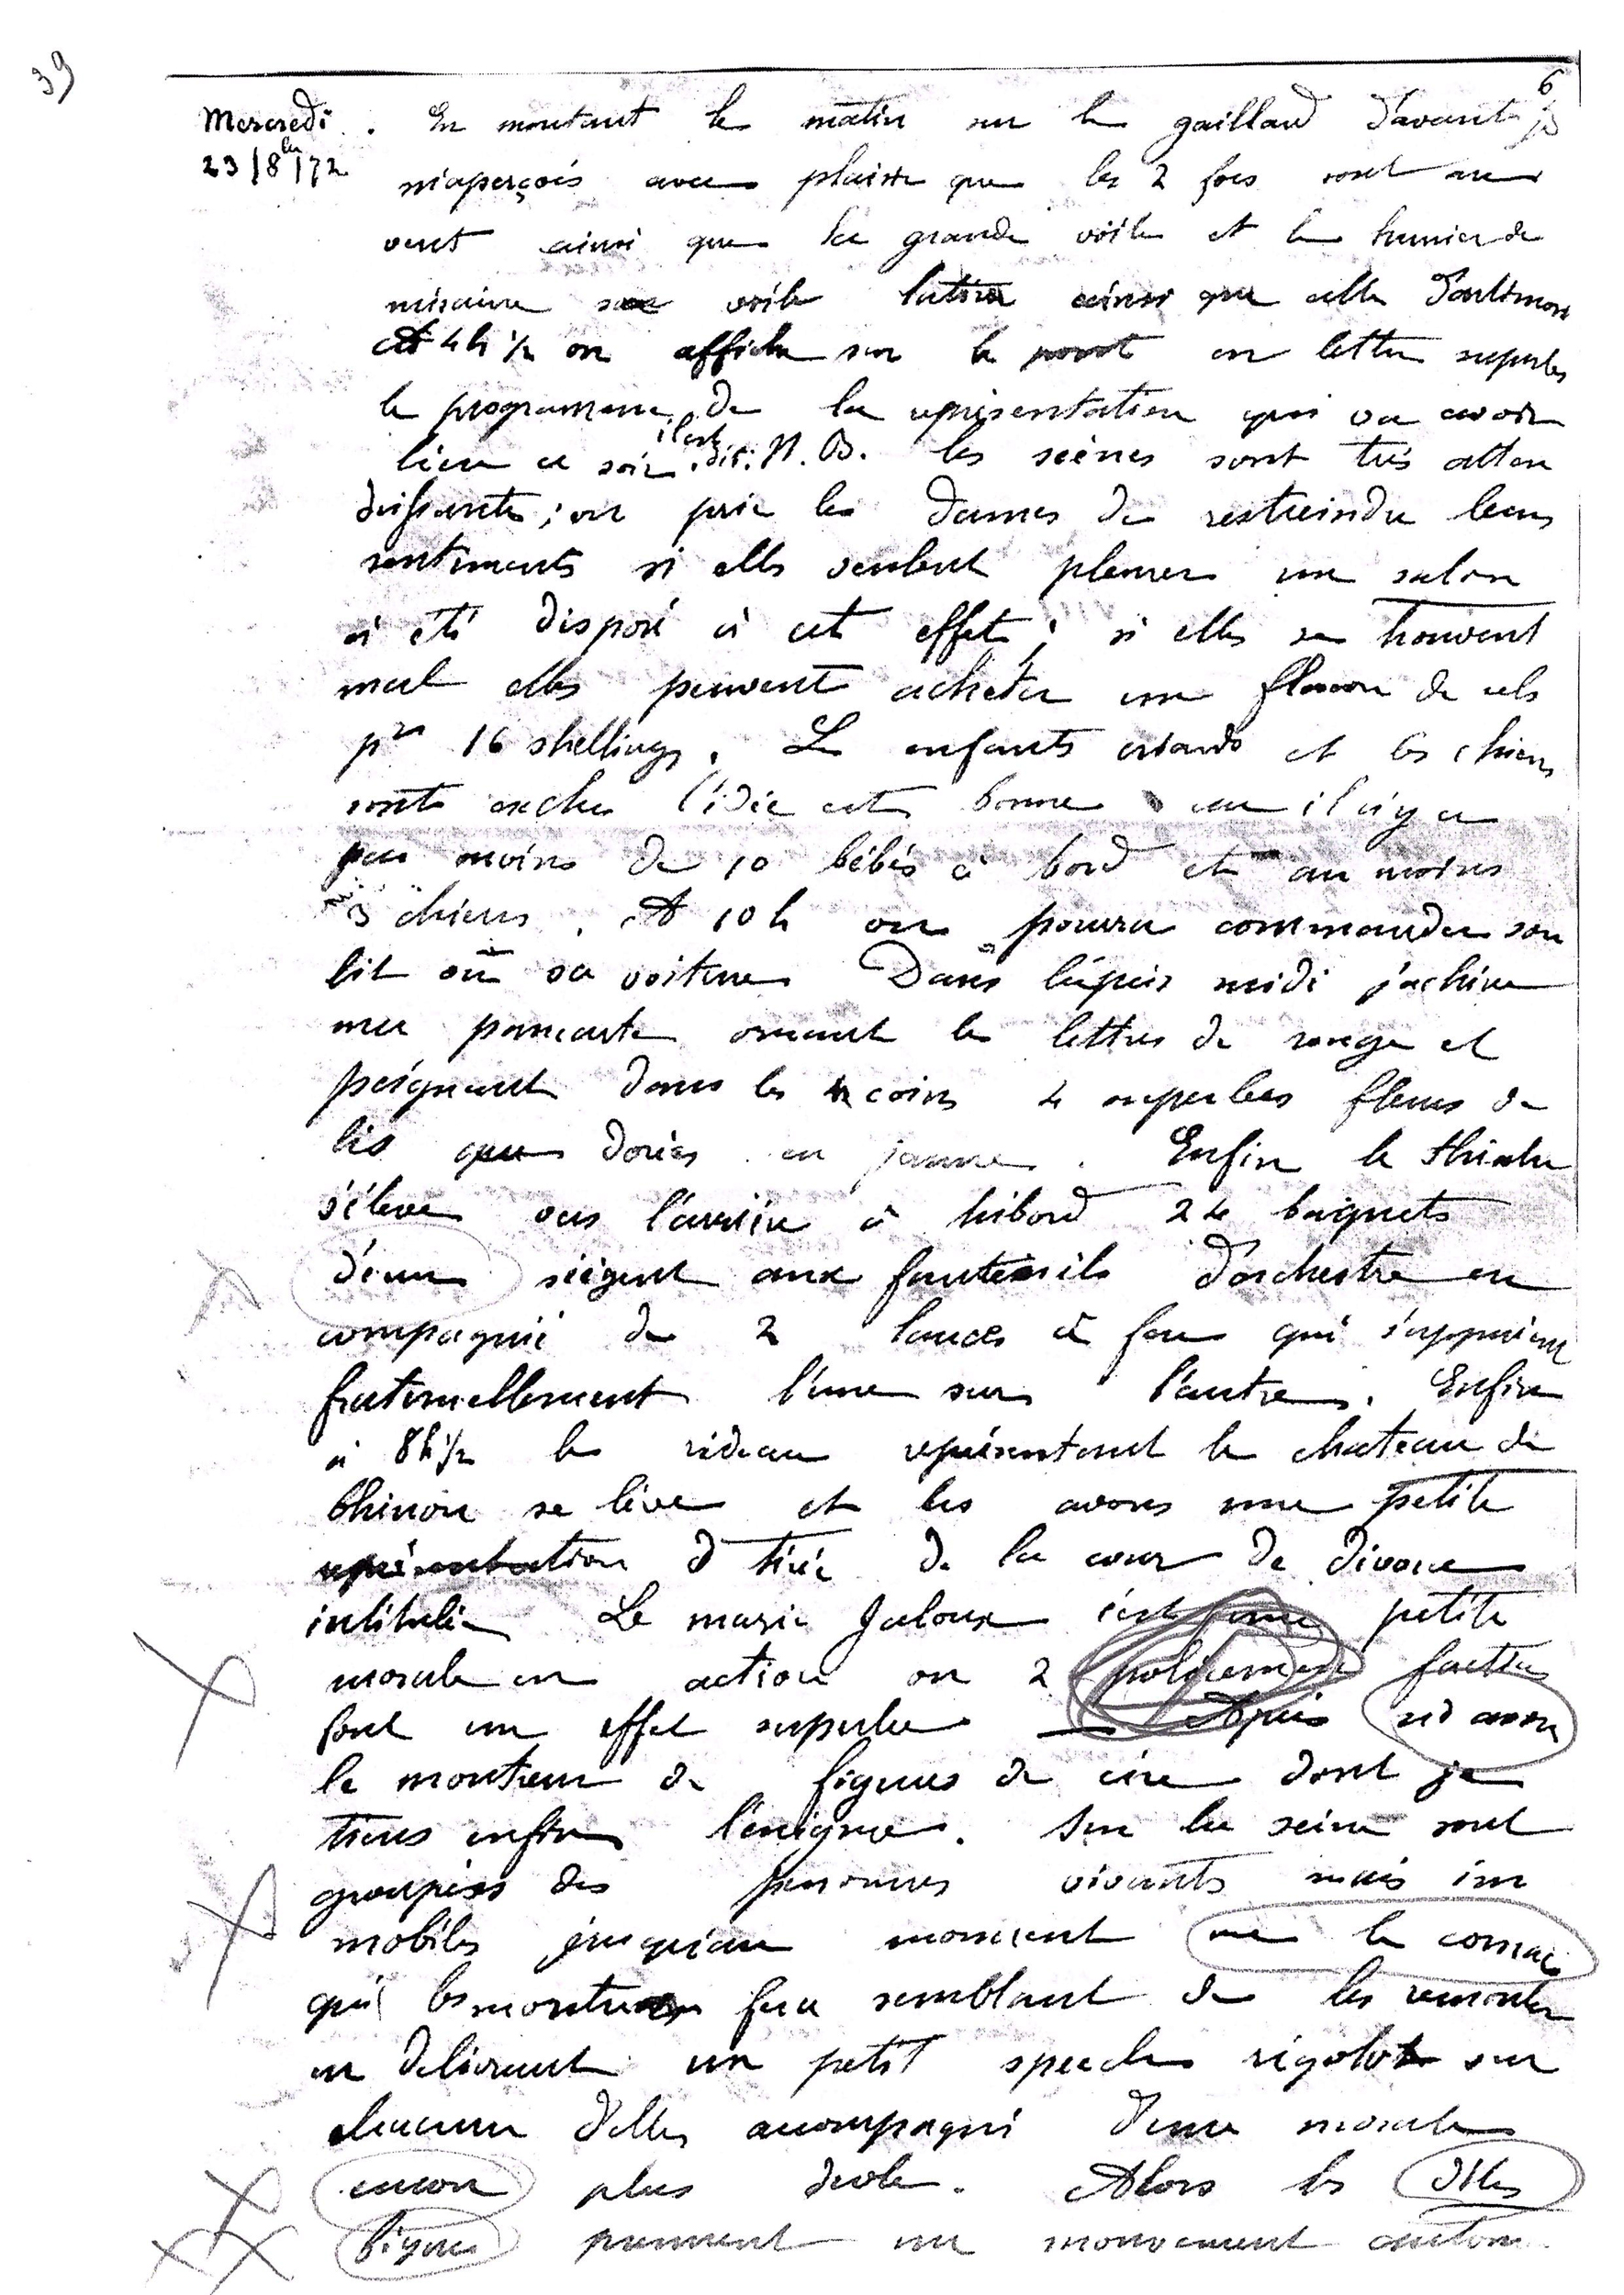 39
6
Mercredi . En montant le matin sur le gaillard d'avant je
23/8bre/72 m'aperçois avec plaisir que les 2 focs sont au
vent ainsi que la grande voile et le hunier de
misaine sa voile latine ainsi que celle d'artimon
A 4h ½ on affiche sur le pont en lettre superbes
le programme de la représentation qui va avoir
lieu ce soir il est dit: N.B. les scènes sont très atten
drissantes ; on prie les dames de restreindre leurs
sentiments si elles veulent pleurer un salon
a été disposé à cet effet ; si elles se trouvent
mal elles peuvent acheter un flacon de sels
pr 16 shellings . Les enfants criards et les chiens
sont exclus l'idée est bonne car il n'y a
pas moins de 10 bébés à bord et au moins
3 chiens . A 10h on pourra commander son
lit ou sa voiture Dans l'après midi j'achève
ma pancarte ornant les lettres de rouge et
peignant dans les 4 coins 4 superbes fleurs de
lis dorées en jaune . Enfin le théatre
s'élève vers l'arrière à tribord 24 baquets
d'eau siègent aux fauteuils d'orchestre en
compagnie de 2 lances à feu qui s'appuient
fraternellement l'une sur l'autre . Enfin
à 8h½ le rideau représentant le chateau de
Chinon se lève et les avons une petite
représentation d tirée de la cour de divorce
intitulée Le mari Jaloux c'est une petite
morale en action ou 2 policemen factices
font un effet superbe — Après
le montreur de figures de cire dont je
tiens enfin l'énigme . Sur la scène sont
groupées des personnes vivants mais im
mobiles jusqu'au moment le cornac
qui les montre fera semblant de les remonter
en délivrant un petit speech rigolot sur
chacune d'elles accompagné d'une morale
encore plus drole . Alors les dites
figures prennent un mouvement autom